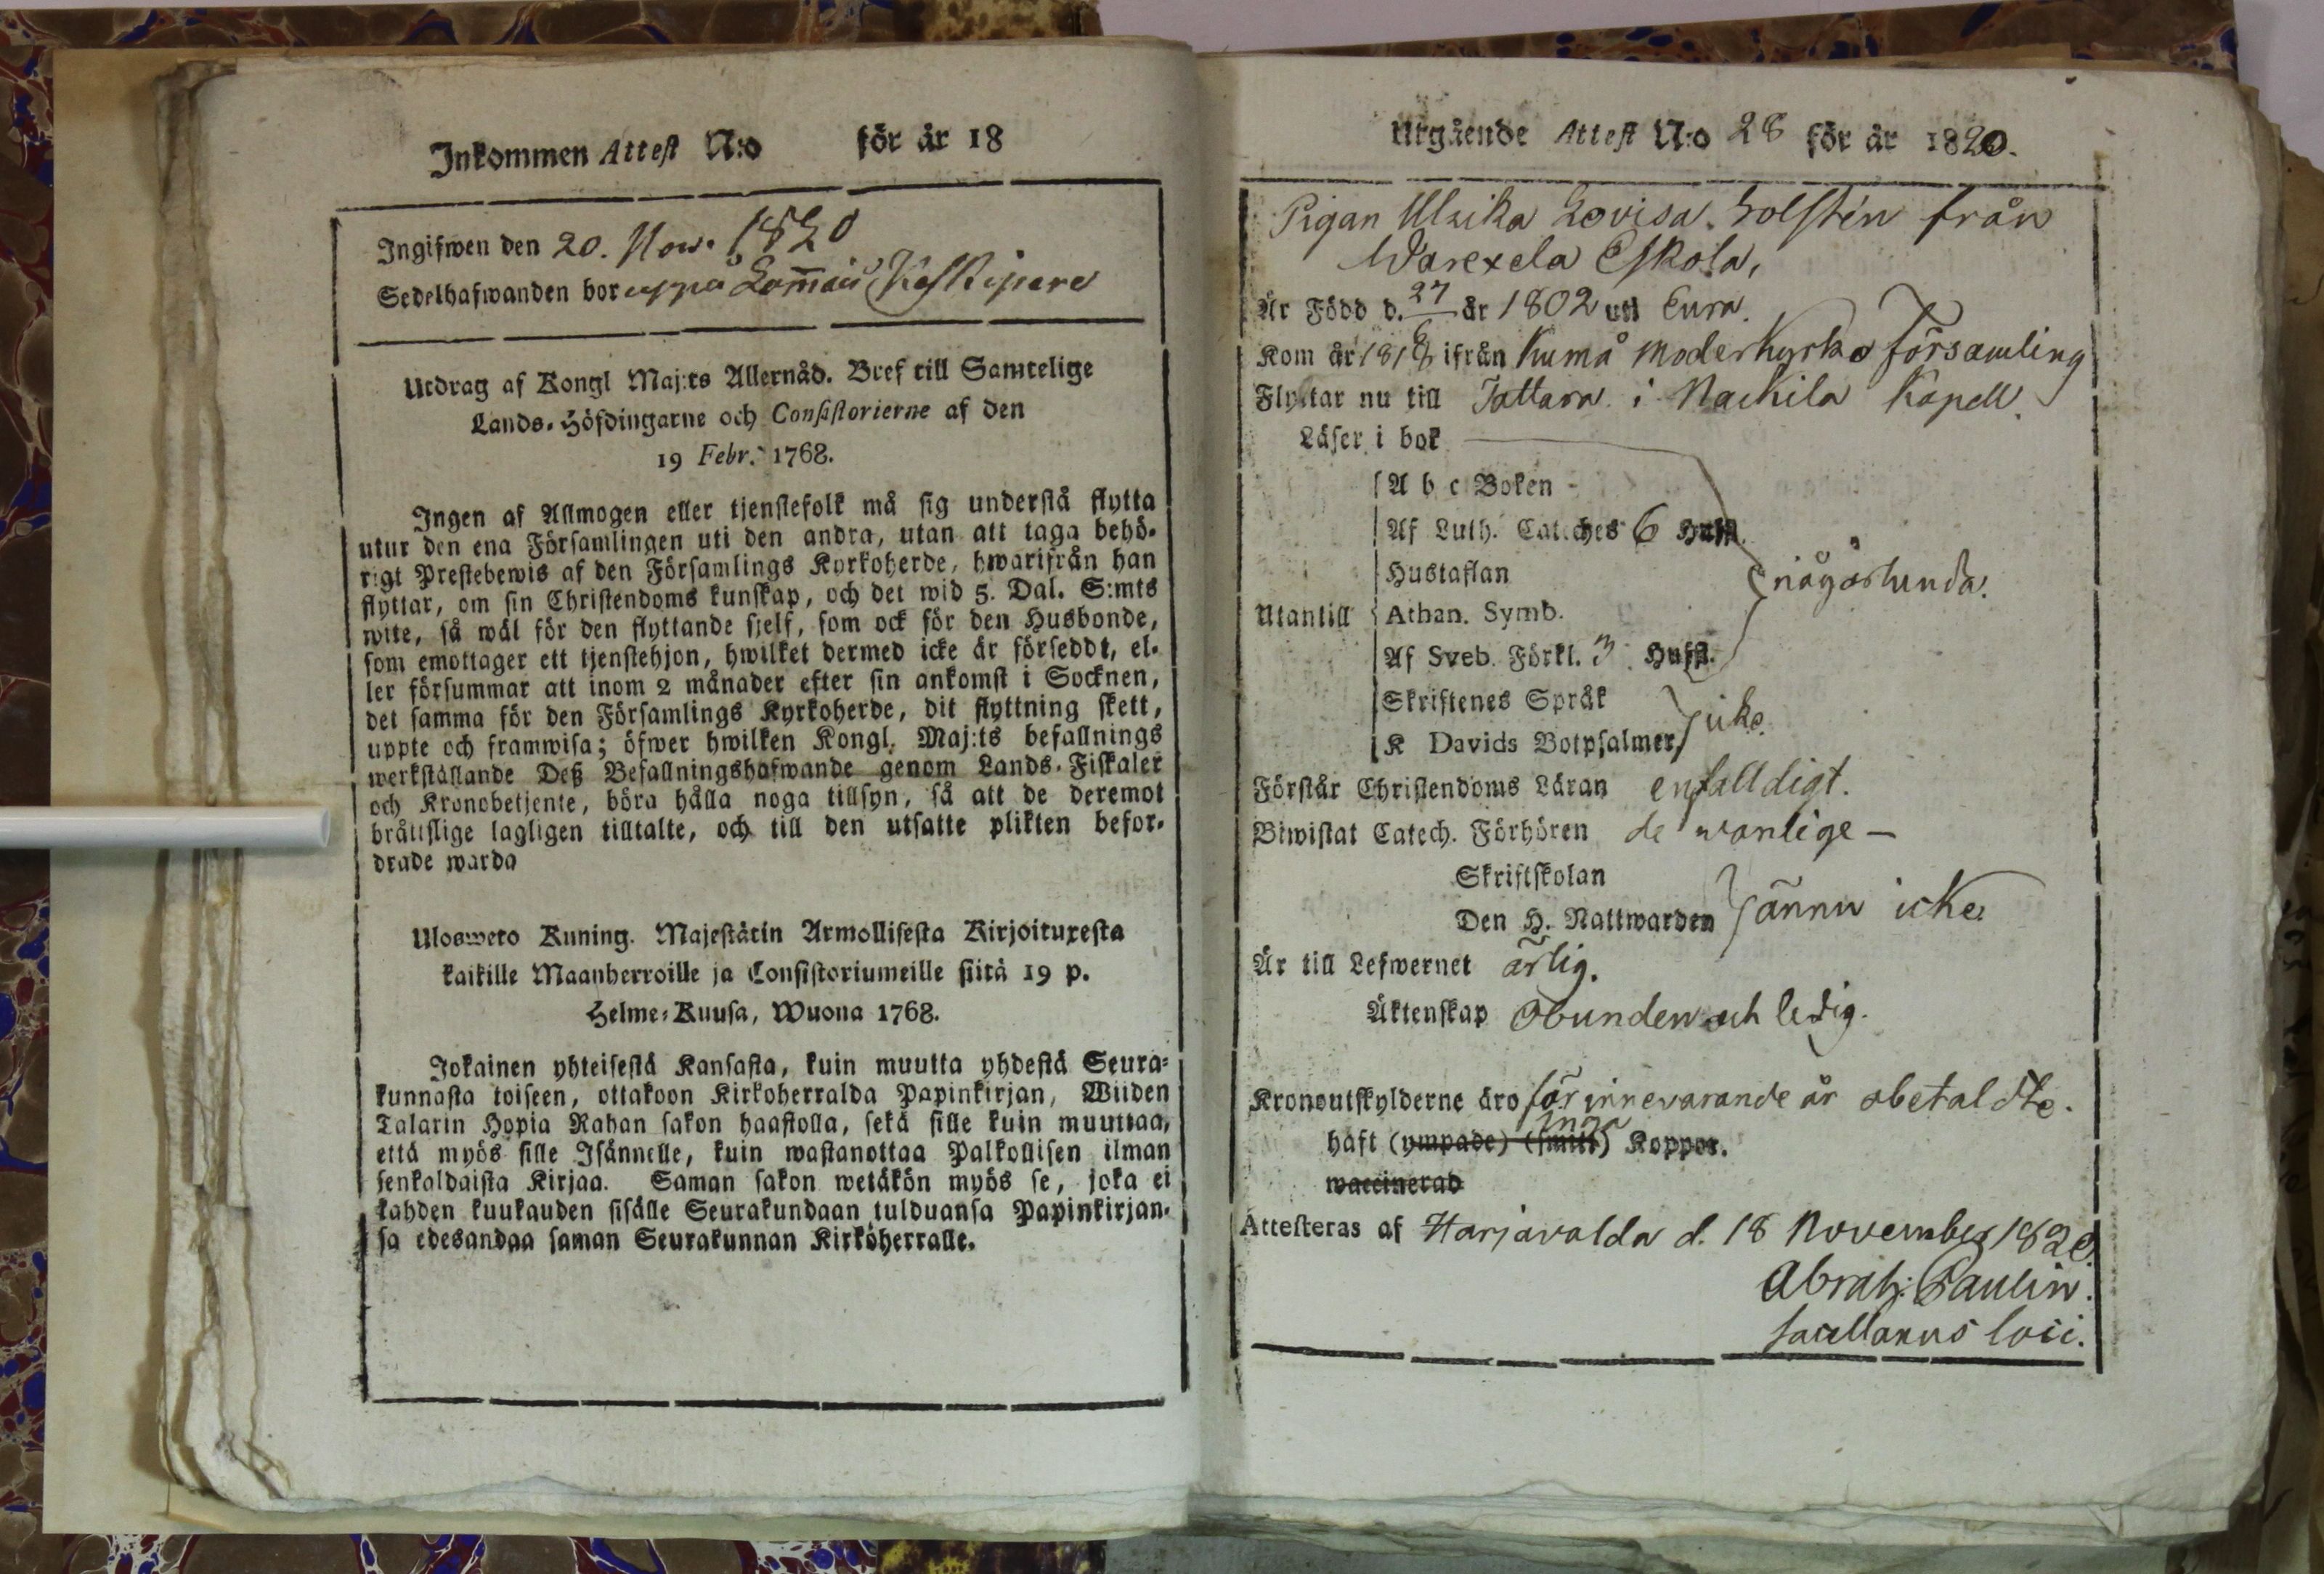 Inkommen Attest N:o för år 18
Ingifwen den 20. Now. 1820
Sedelhafwanden bor uppå Keskipere
Utdrag af Kongl Maj:ts Allernåd. Bref till Samtelige
Lands-Höfdingarne och Consistorierne af den
19 Febr. 1768.
Ingen af Allmogen eller tjenstefolk må sig understå flytta
utur den ena Församlingen uti den andra, utan att taga behö-
rigt Prestebewis af den Församlings Kyrkoherde, hwarifrån han
flyttar, om sin Christendoms kunskap, och det wid 5. Dal. S:mts
wite, så wäl för den flyttande sjelf, som ock för den Husbonde,
som emottager ett tjenstehjon, hwilket dermed icke är förseddt, el-
ler försummar att inom 2 månader efter sin ankomst i Socknen,
det samma för den Församlings Kyrkoherde, dit flyttning skett,
uppte och framwisa; öfwer hwilken Kongl. Maj:ts befallnings
werkställande Deß Befallningshafwande genom Lands-Fiskaler
och Kronobetjente, böra hålla noga tillsyn, så att de deremot
bråttslige lagligen tilltalte, och till den utsatte plikten befor-
drade warda
Ulosweto Kuning. Majestätin Armollisesta Kirjoituxesta
kaikille Maanherroille ja Consistoriumeille siitä 19 p.
Helme-Kuusa, Wuona 1768.
Jokainen yhteisestä Kansasta, kuin muutta yhdestä Seura-
kunnasta toiseen, ottakoon Kirkoherralda Papinkirjan, Wiiden
Talarin Hopia Rahan sakon haastolla, sekä sille kuin muuttaa,
että myös sille Isännelle, kuin wastanottaa Palkollisen ilman
senkaldaista Kirjaa. Saman sakon wetäkön myös se, joka ei
kahden kuukauden sisälle Seurakundaan tulduansa Papinkirjan-
sa edesandaa saman Seurakunnan Kirköherralle.
Utgående Attest N:o 28 för år 1820.
Pigan Ulrika Lovisa Holstén från
Warexela Eskola,
Är Född d. 27/6 år 1802 uti Eura.
Kom år 1818 ifrån Kumå Moderkyrko Församling
Flyttar nu till Tattara i Nackila Kapell.
Läser i bok
A b c Boken
Af Luth. Catches 6 Hufst.
Hustaflan
någorlunda.
Utantill Athan. Symb.
Af Sveb. Förkl. 3 Hufst.
Skriftenes Språk
icke
K Davids Botpsalmer
Förstår Christendoms Läran enfalldigt.
Biwistat Catech. Förhören de wanlige —
Skriftskolan
Den H. Nattwarden ännu icke
Är till Lefwernet ärlig.
Äktenskap Obunden och ledig.
Kronoutskylderne äro för innevarande år obetaldte.
haft (ympade) (smitt) inga Koppor.
waccinerad
Attesteras af Harjavalda d. 18 November 1820.
Abrah: Paulin.
Sacellanus loci.